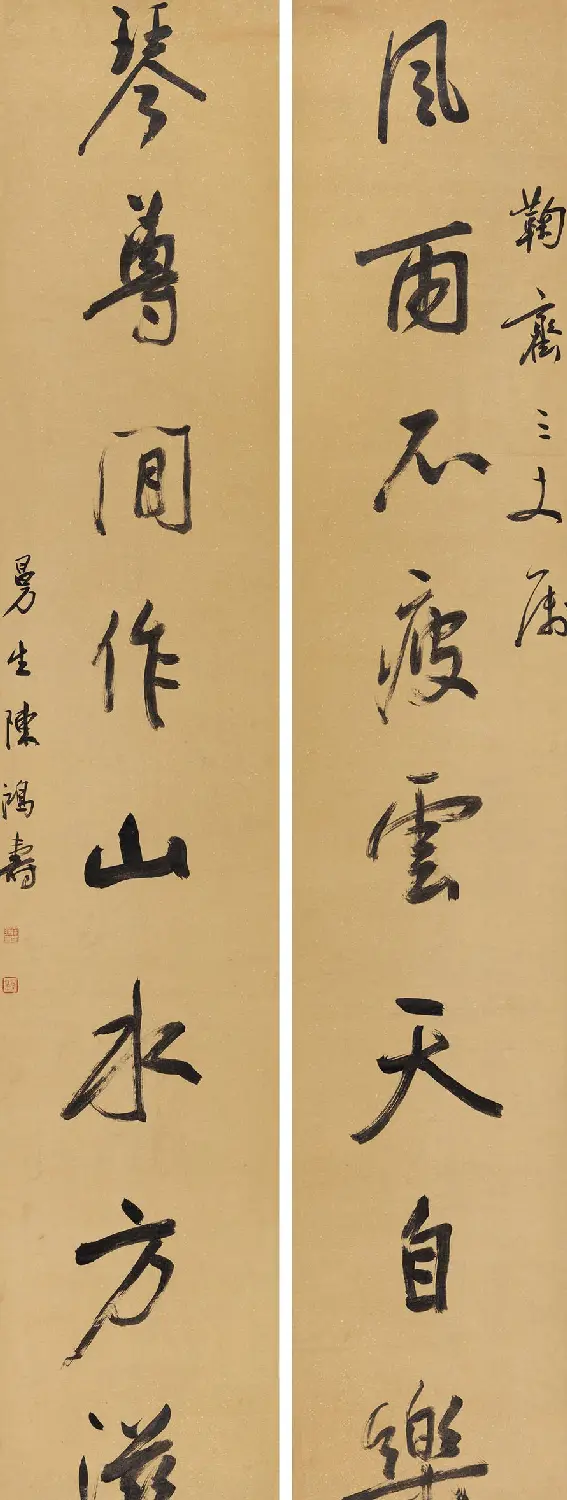 鞠㢲三丈属
風雨不疲雲天自樂
琴尊間作山水方滋
曼生陳鴻壽